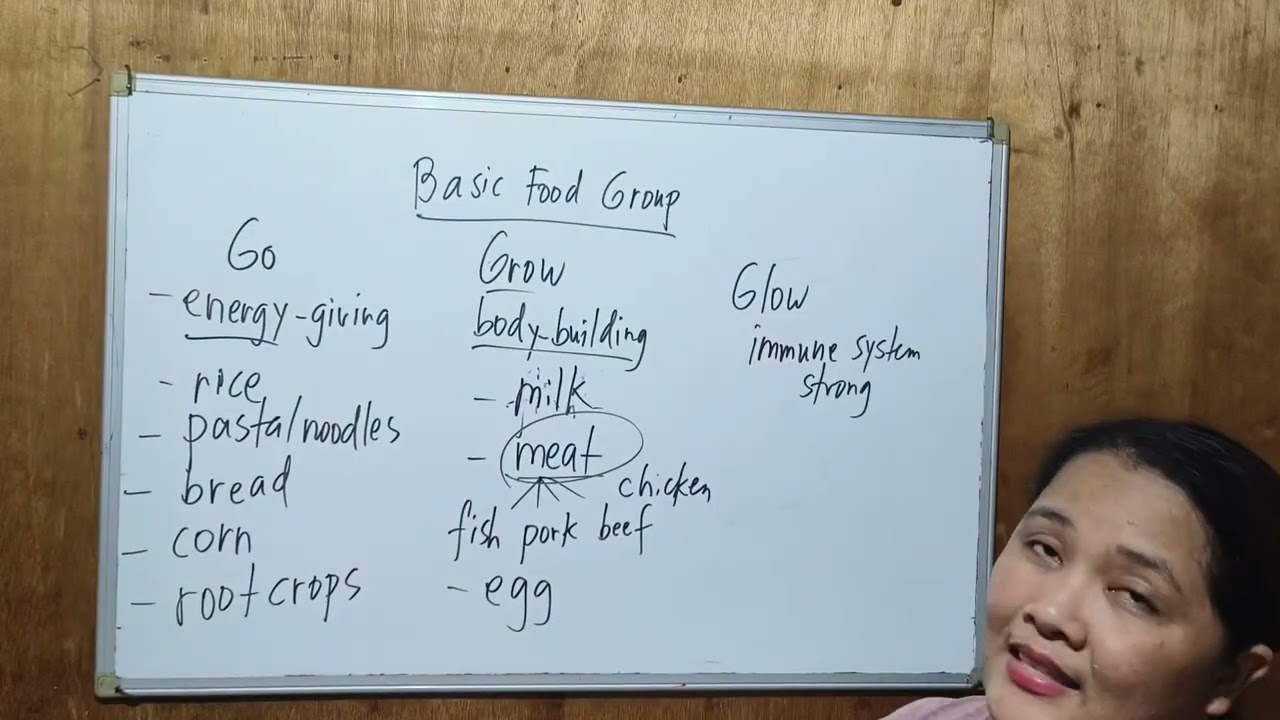 Basic Food Group
Go
- energy-giving
- rice
- pasta/noodles
- bread
- corn
- rootcrops
Grow
body-building
- milk
- meat
chicken
fish pork beef
- egg
Glow
immune system
strong